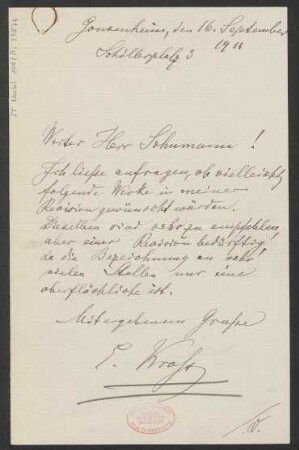 Gonzenheim, den 16. September
1911
Schillerplatz 3
Werter Herr Schumann!
Ich ließe anfragen, ob vielleicht
folgende Werke in meiner
Revision gewünscht würden.
Dieselben sind sehr zu empfehlen,
aber einer Revision bedürftig,
da die Bezeichnung an sehr
vielen Stellen nur eine
oberflächliche ist.
Mit ergebenem Gruße
E. Kross